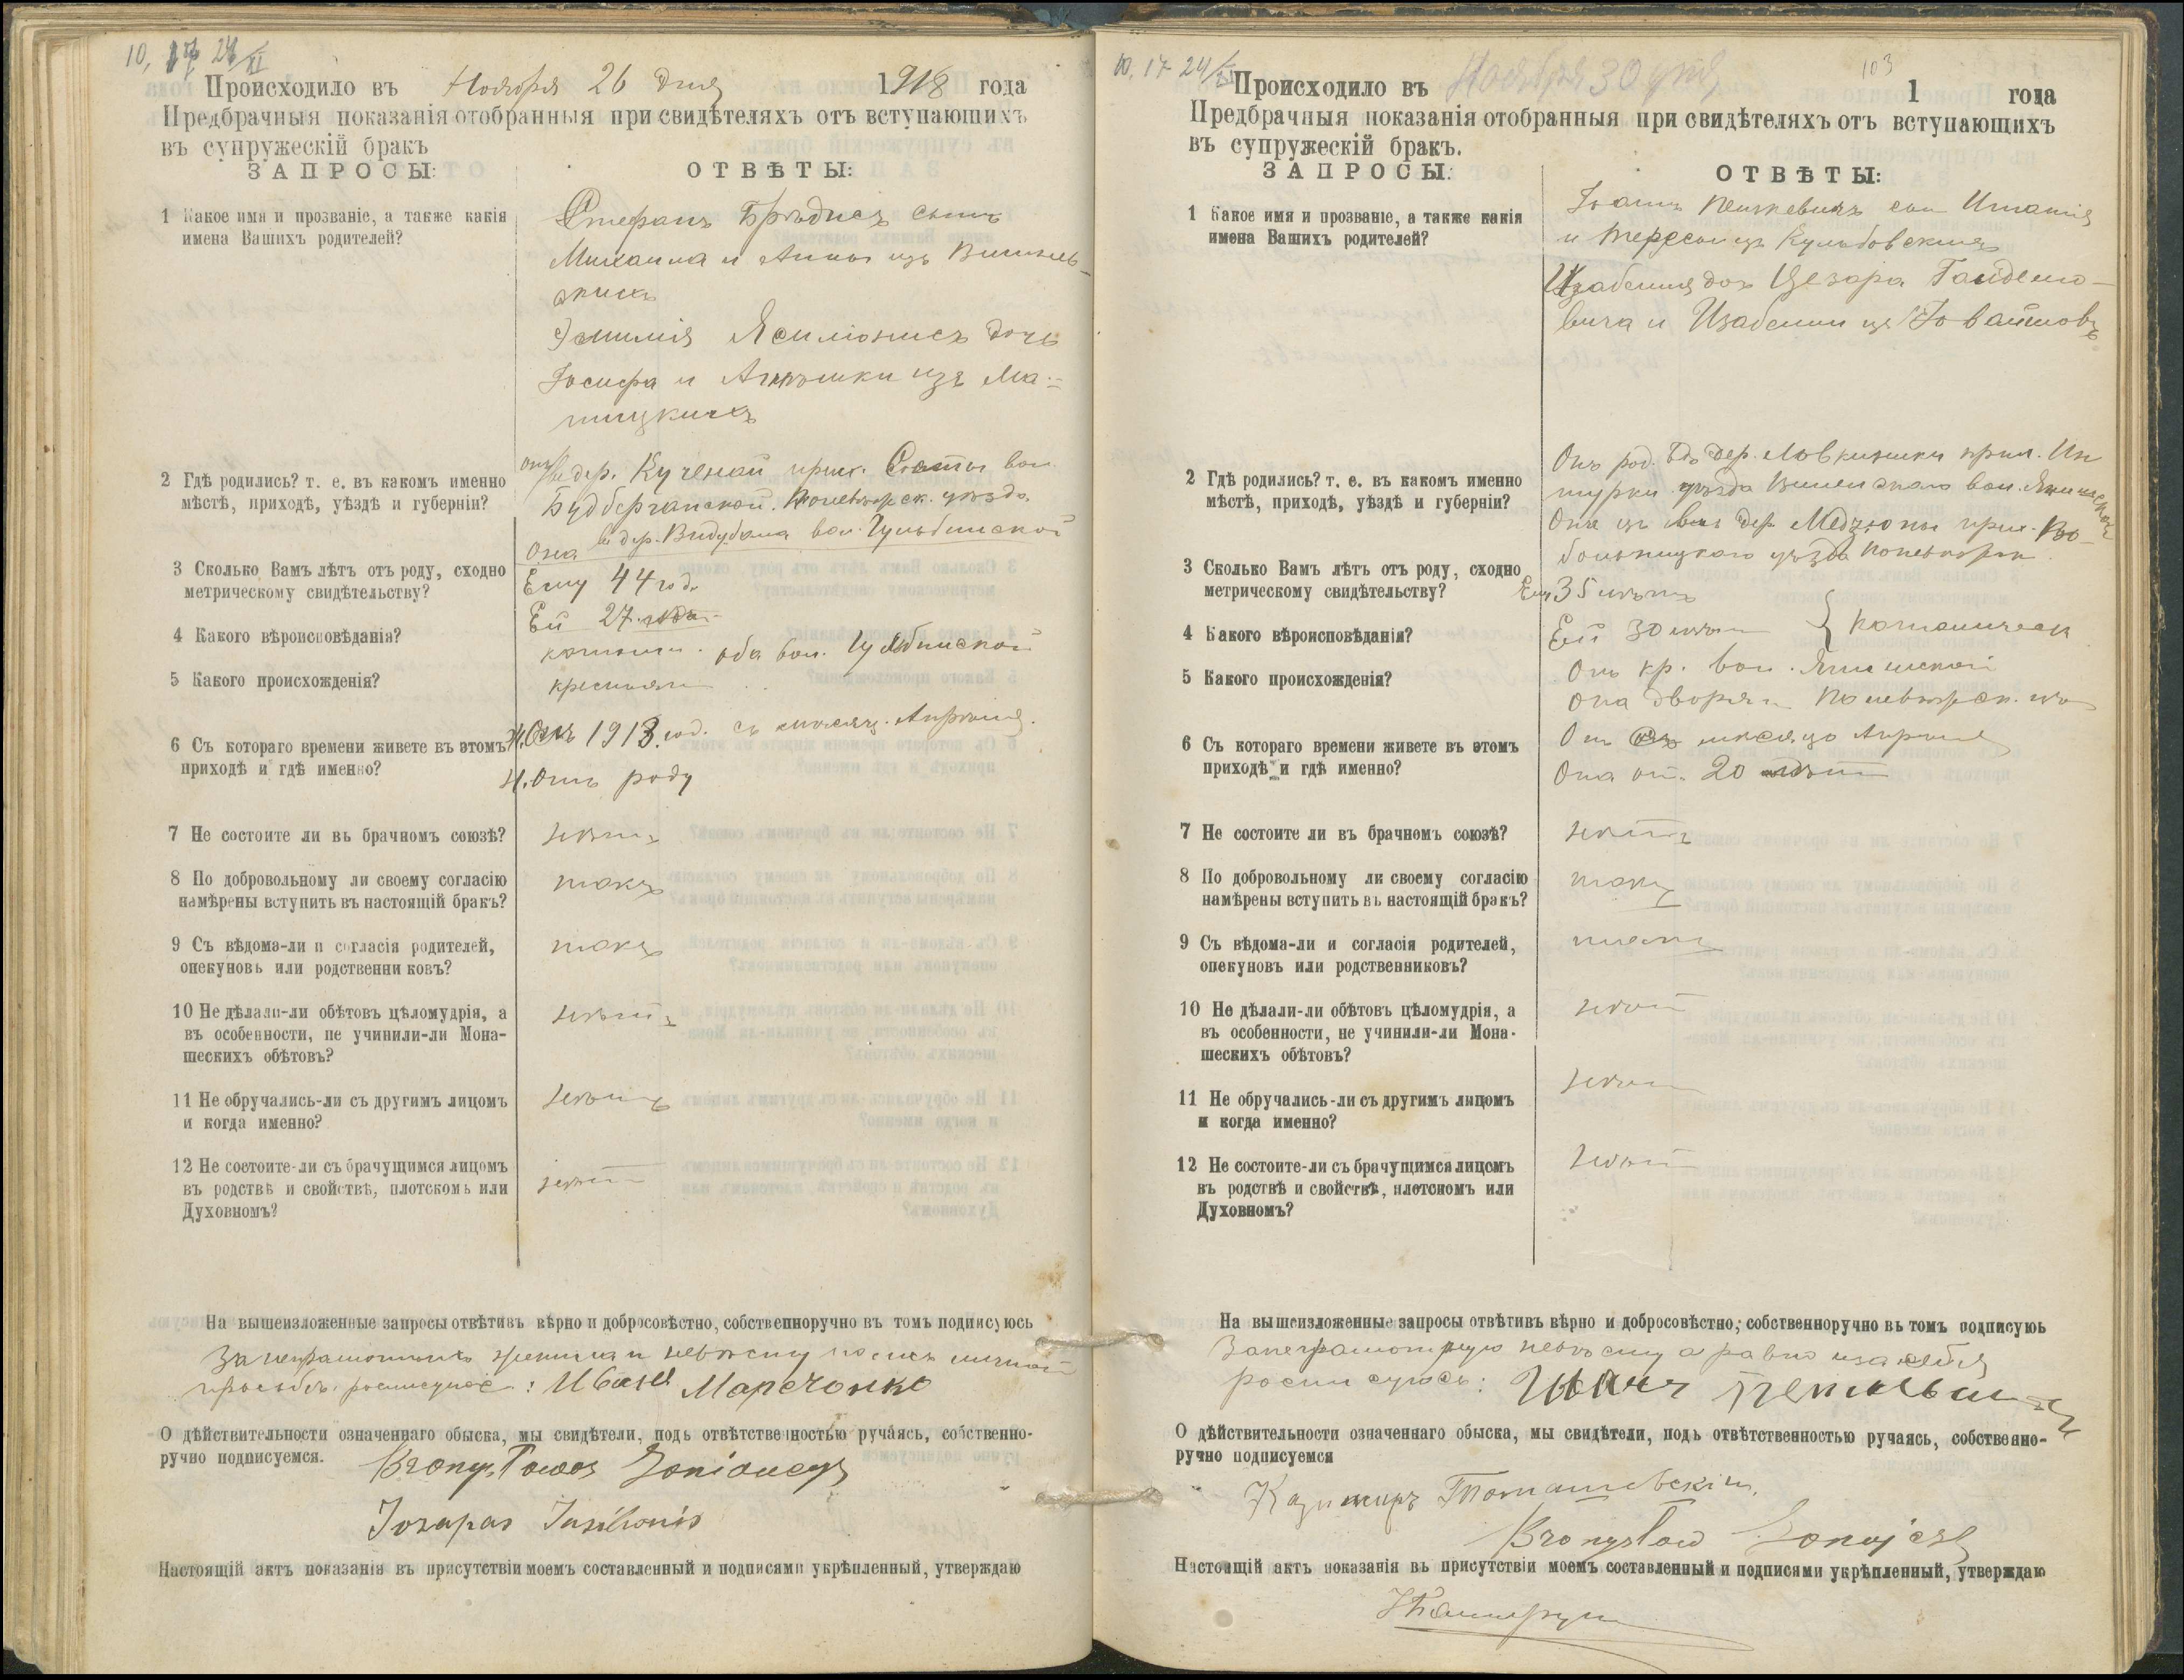 10, 17 24/XI
Происходило въ Ноября 26 дня 1918 года
Предбрачныя показанія отобранныя при свидѣтеляхъ отъ вступающихъ
въ супружескій бракъ
ЗАПРОСЫ: ОТВѢТЫ:
1 Какое имя и прозваніе, а также какія
имена Вашихъ родителей?
Стефанъ Брѣдисъ сынъ
Михаила и Анны изъ
Эмилія Ясиліонисъ дочь
Іосифа и Агнѣшки изъ Ма-
2 Гдѣ родились? т. е. въ какомъ именно
мѣстѣ, приходѣ, уѣздѣ и губерніи?
Онъ въ дер. прих. вол.
Поневѣжск. уѣзда
Она въ дер. вол.
3 Сколько Вамъ лѣтъ отъ роду, сходно
метрическому свидѣтельству?
Ему 44 год.
Ей 27
4 Какого вѣроисповѣданія?
оба вол.
5 Какого происхожденія?
крестьяне
6 Съ котораго времени живете въ этомъ
приходѣ и гдѣ именно?
1913 год. съ мѣсяц. Апрѣля.
Отъ роду
7 Не состоите ли въ брачномъ союзѣ?
нѣтъ
8 По добровольному ли своему согласію
намѣрены вступить въ настоящій бракъ?
такъ
9 Съ вѣдома-ли и согласія родителей,
опекуновъ или родственниковъ?
такъ
10 Не дѣлали-ли обѣтовъ цѣломудрія, а
въ особенности, не учинили-ли Мона-
шескихъ обѣтовъ?
нѣтъ
11 Не обручались-ли съ другимъ лицомъ
и когда именно?
нѣтъ
12 Не состоите-ли съ брачущимся лицомъ
въ родствѣ и свойствѣ, плотскомъ или
Духовномъ?
нѣтъ
На вышеизложенные запросы отвѣтивъ вѣрно и добросовѣстно, собственноручно въ томъ подписуюсь
За неграмотныхъ жениха и невѣсту по ихъ личной
просьбѣ росписуюсь: Иванъ Марчонко
О дѣйствительности означеннаго обыска, мы свидѣтели, подъ отвѣтственностью ручаясь, собственно-
ручно подписуемся.
Jozapas Jasilionis
Настоящій актъ показанія въ присутствіи моемъ составленный и подписями укрѣпленный, утверждаю
10, 17 24/XI 103
Происходило въ Ноября 30 дня 1 года
Предбрачныя показанія отобранныя при свидѣтеляхъ отъ вступающихъ
въ супружескій бракъ.
ЗАПРОСЫ: ОТВѢТЫ:
1 Какое имя и прозваніе, а также какія
имена Вашихъ родителей?
Іоаннъ сын Игнатія
и Терессы изъ
Изабелля доч Цезара Гайдемо-
вича и Изабелли из
2 Гдѣ родились? т. е. въ какомъ именно
мѣстѣ, приходѣ, уѣздѣ и губерніи?
Онъ род. въ дер. прих. Ин
турки уѣзда Виленскаго вол.
Она изъ дер. Медзюны прих.
уѣзда Поневѣжск
3 Сколько Вамъ лѣтъ отъ роду, сходно
метрическому свидѣтельству?
Ему 35 лѣтъ
Ей 30 лѣтъ
4 Какого вѣроисповѣданія?
Католическ
5 Какого происхожденія?
Онъ кр. вол.
Она дворян Поневѣжск.
6 Съ котораго времени живете въ этомъ
приходѣ и гдѣ именно?
Он съ мѣсяца Апрѣля
Она от. 20 лѣтъ
7 Не состоите ли въ брачномъ союзѣ?
нѣтъ
8 По добровольному ли своему согласію
намѣрены вступить въ настоящій бракъ?
такъ
9 Съ вѣдома-ли и согласія родителей,
опекуновъ или родственниковъ?
такъ
10 Не дѣлали-ли обѣтовъ цѣломудрія, а
въ особенности, не учинили-ли Мона-
шескихъ обѣтовъ?
нѣтъ
11 Не обручались-ли съ другимъ лицомъ
и когда именно?
нѣтъ
12 Не состоите-ли съ брачущимся лицомъ
въ родствѣ и свойствѣ, плотскомъ или
Духовномъ?
нѣтъ
На вышеизложенные запросы отвѣтивъ вѣрно и добросовѣстно, собственноручно въ томъ подписуюь
За неграмотную невѣсту а равно и за себя
роспи суюсь: Иванъ
О дѣйствительности означеннаго обыска, мы свидѣтели, подъ отвѣтственностью ручаясь, собственно-
ручно подписуемся
Казимиръ Томашевскій
Bronysław
Настоящій актъ показанія въ присутствіи моемъ составленный и подписями укрѣпленный, утверждаю